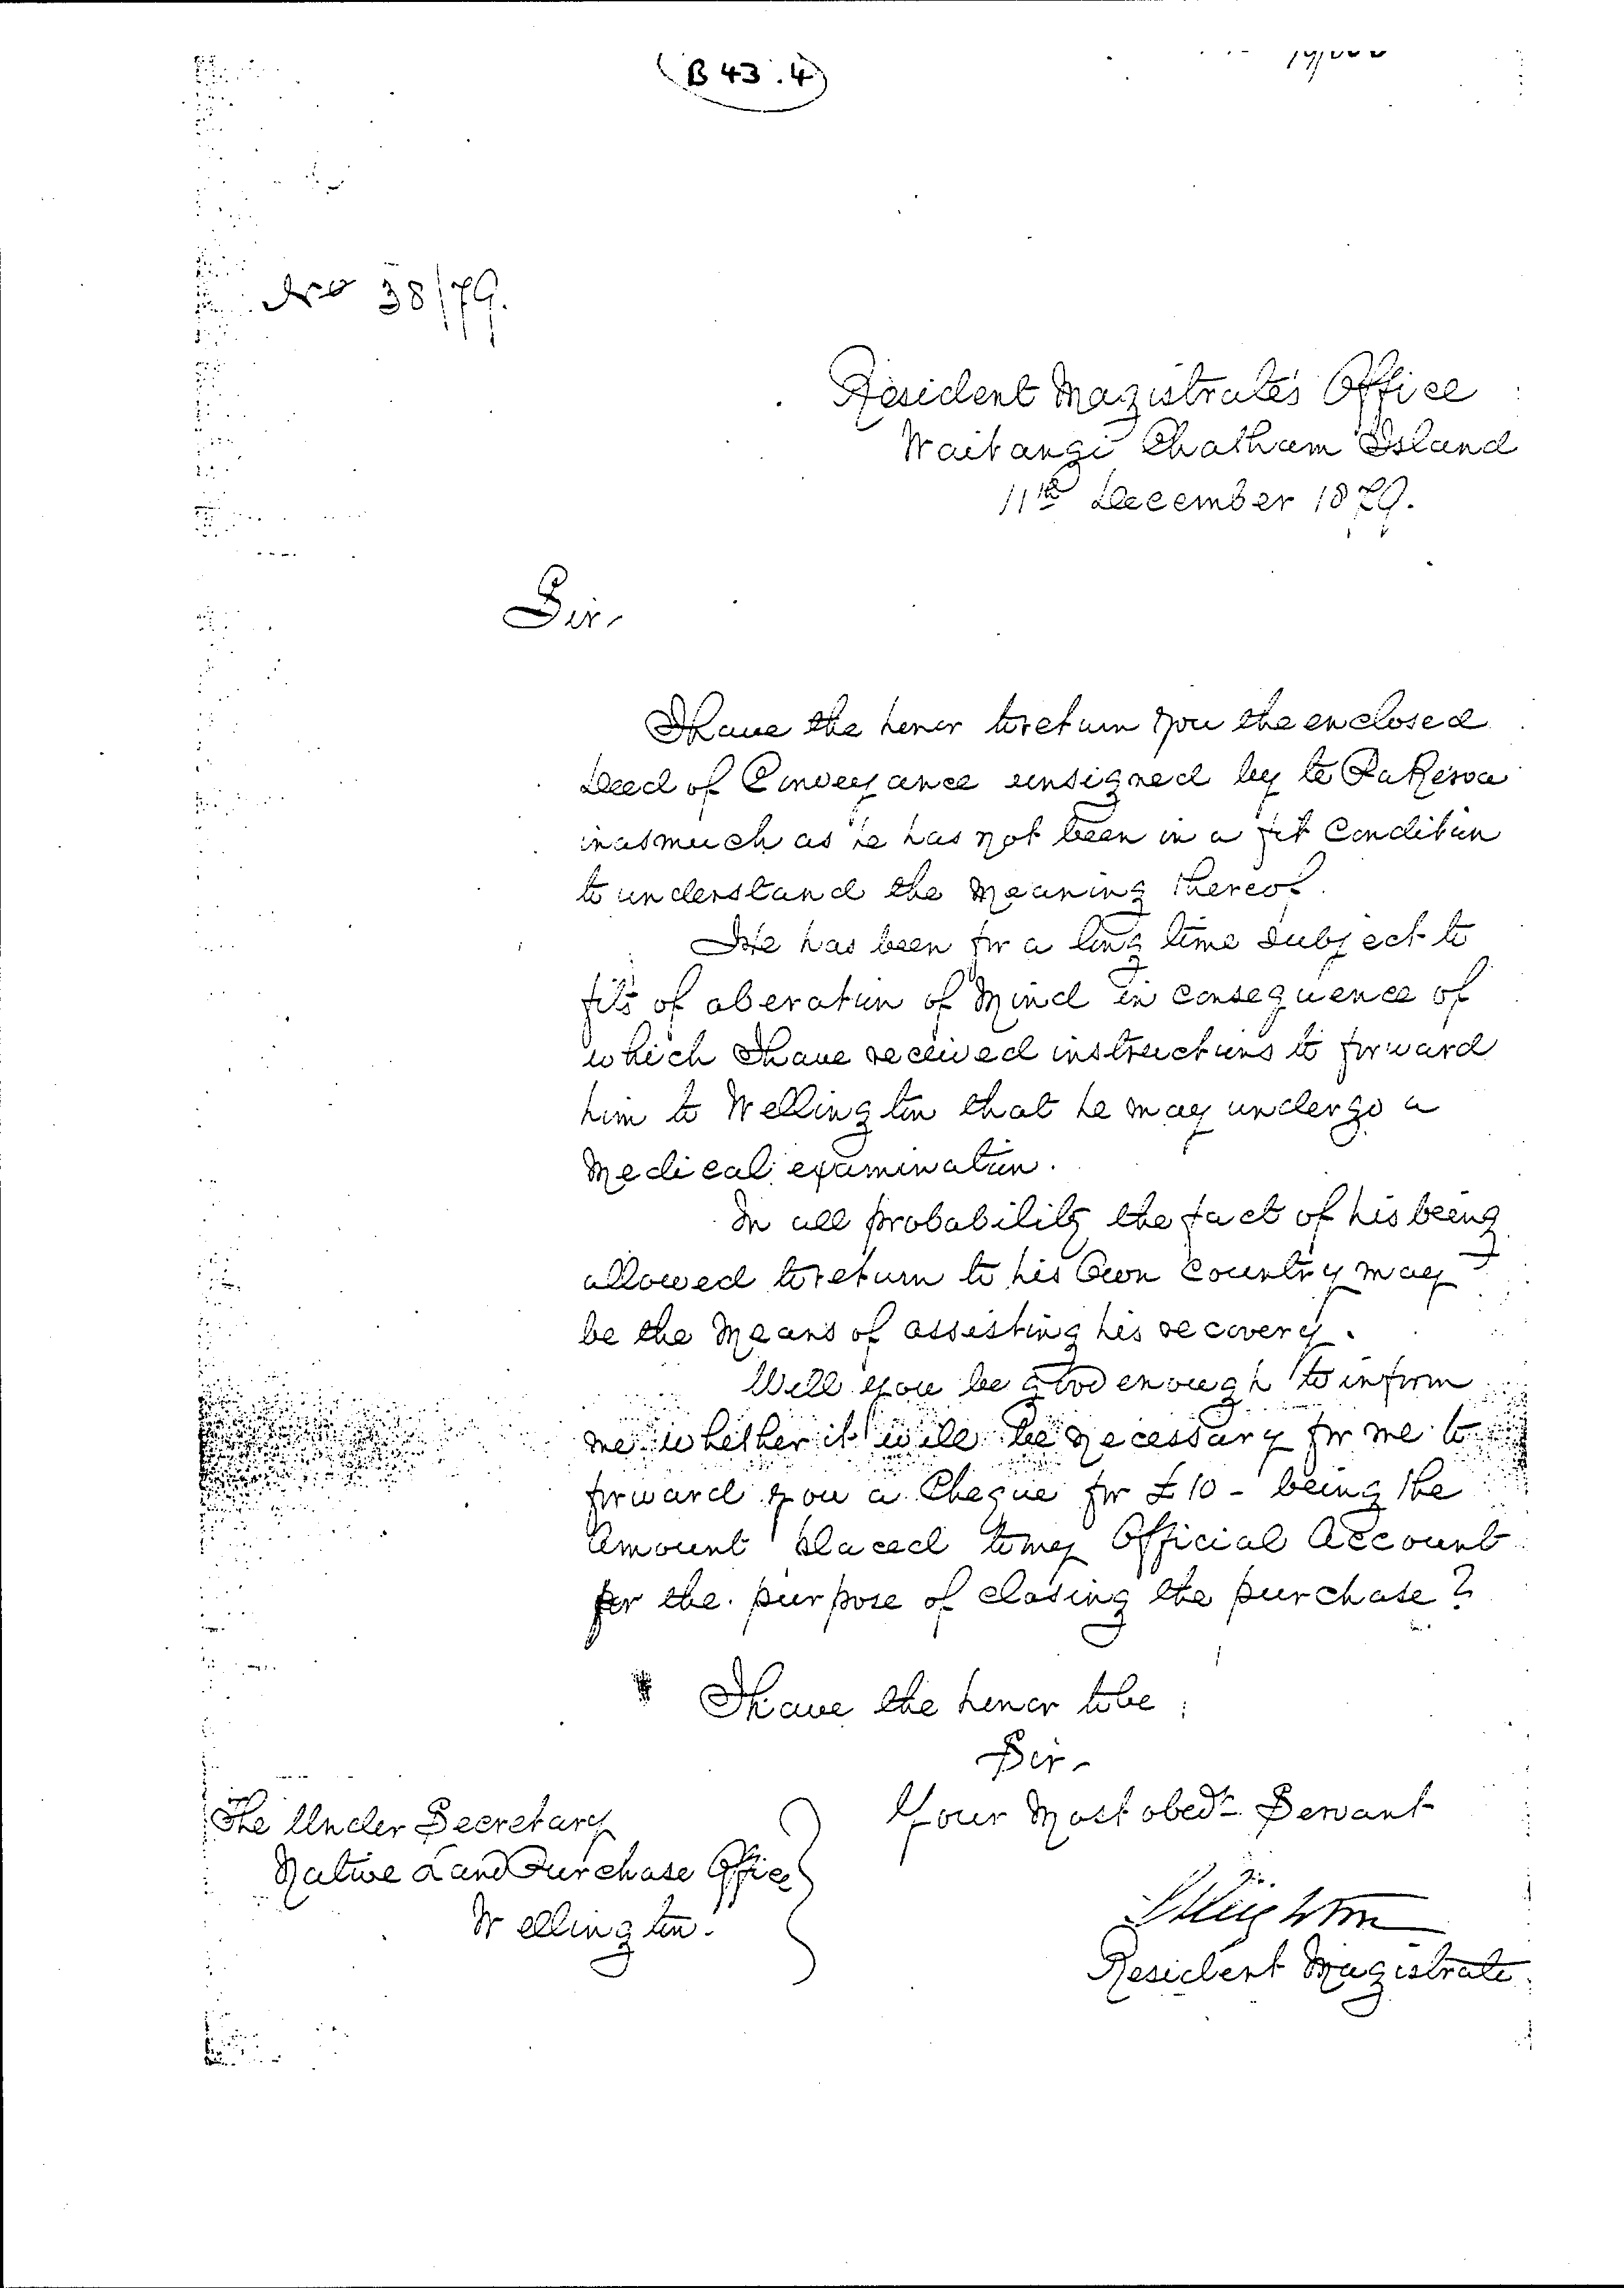 B 43.4
No 38/79.
Resident Magistrate's Office
Waitangi Chatham Island
11th December 1879.
Sir,
I have the honor to return you the enclosed
Deed of Conveyance unsigned by te
inasmuch as he has not been in a fit Condition
to understand the Meaning thereof.
He has been for a long time subject to
fits of aberation of Mind in consequence of
which I have received instructions to forward
him to Wellington that he may undergo a
Medical examination.
In all probability the fact of his being
allowed to return to his Own Country may
be the Means of assisting his recovery.
Will you be good enough to inform
me whether it will be necessary for me to
forward you a Cheque for £10 - being the
Amount placed to my Official Account
for the purpose of closing the purchase?
I have the honor to be
Sir,
Your Most obedt. Servant
The Under Secretary
Native Land Purchase Office
Wellington.
Resident Magistrate